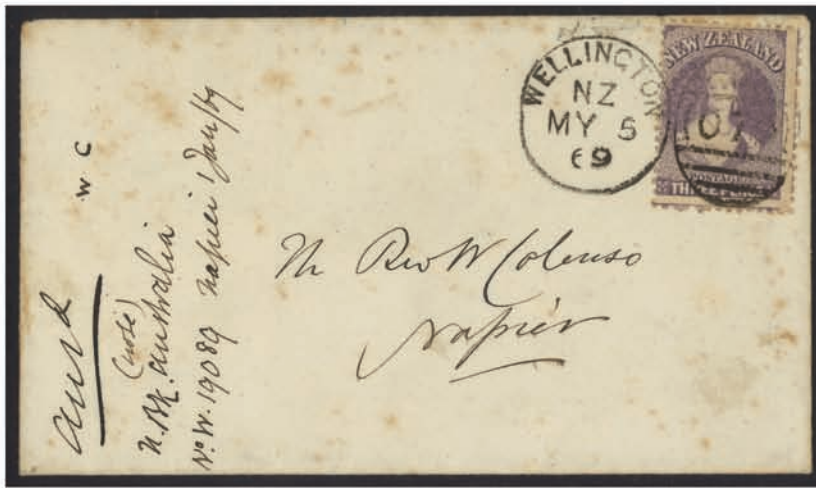 WELLINGTON
NZ
MY 5
69
NEW ZEALAND
POSTAGE
THREE PENCE
07
Rev W Colenso
Napier
W C
(note)
N. Bk. Australia
No W. 19089 Napier 1 Jan/69